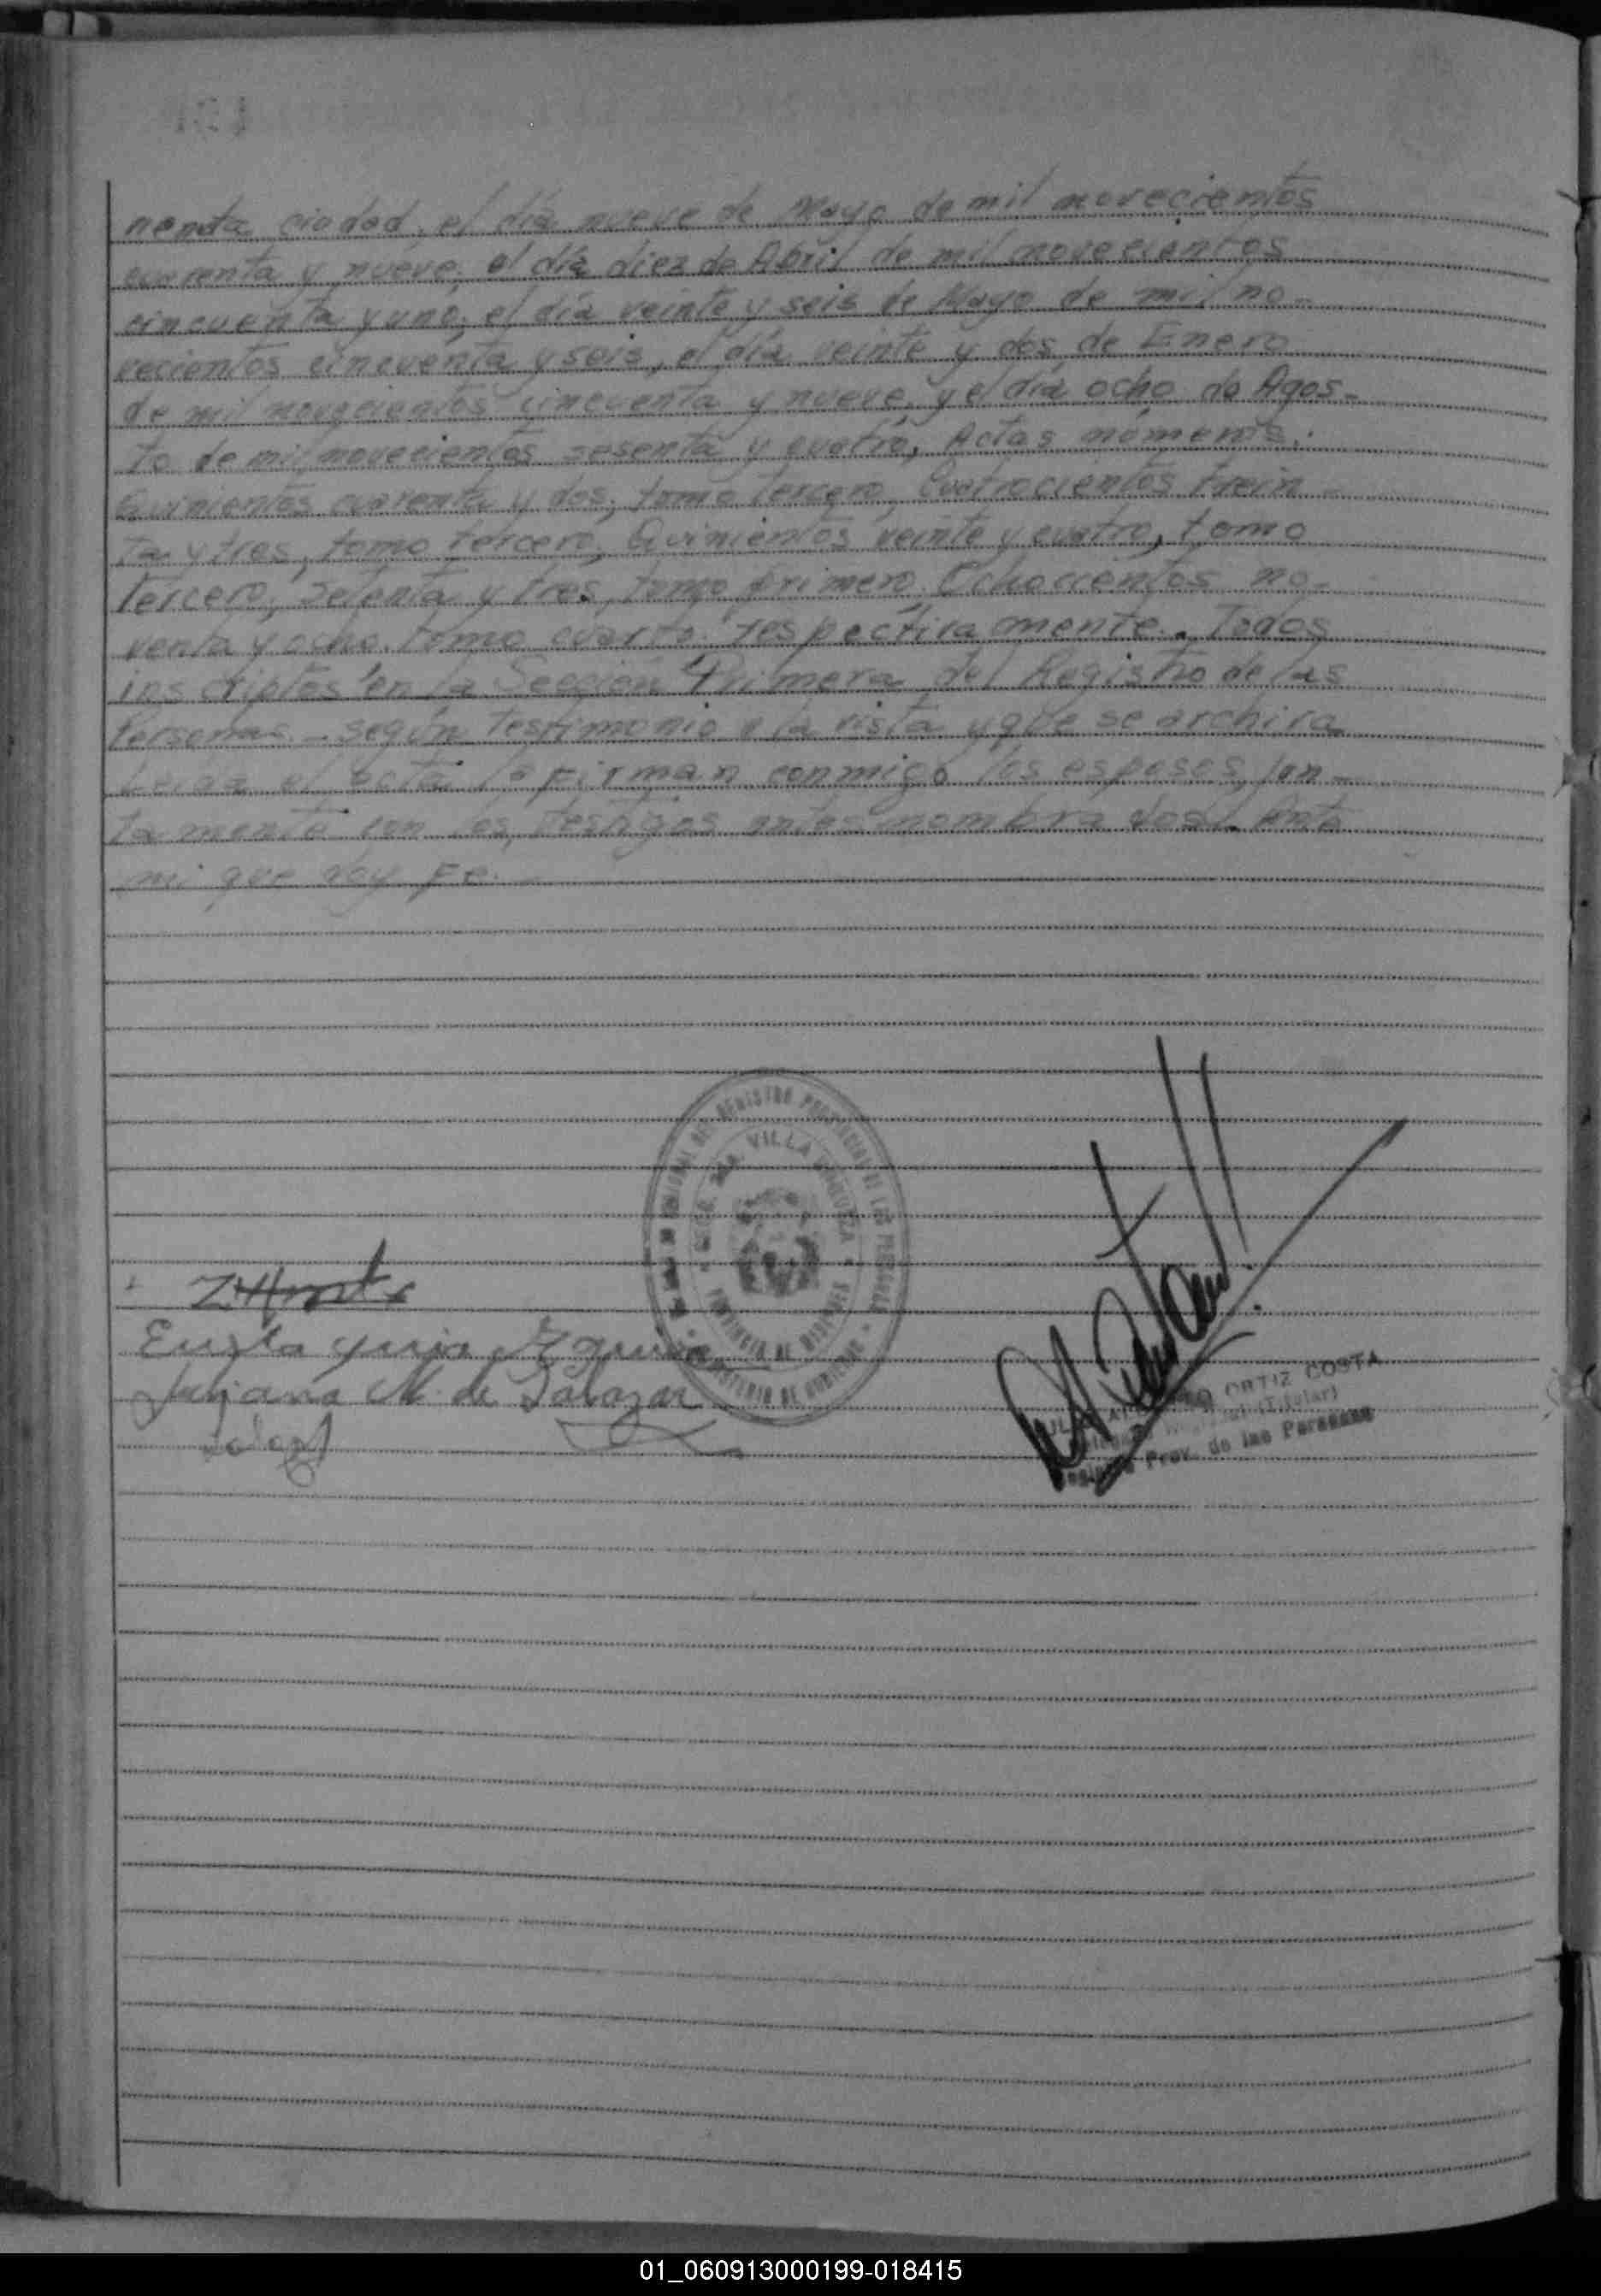 nenta ciudad, el día nueve de Mayo de mil novecientos
cuarenta y nueve; el día diez de Abril de mil novecientos
cincuenta y uno; el día veinte y seis de Mayo de mil no-
vecientos cincuenta y seis, el día veinte y dos de Enero
de mil novecientos cincuenta y nueve, y el día ocho de Agos-
to de mil novecientos sesenta y cuatro, Actas números:
Quinientos cuarenta y dos, tomo tercero, Cuatrocientos trein-
ta y tres, tomo tercero, Quinientos veinte y cuatro, tomo
tercero, setenta y tres, tomo primero, Ochocientos no-
venta y ocho. tomo cuarto. respectivamente. Todos
inscriptos en la Sección Primera del Registro de las
Personas. - según testimonio a la vista y que se archiva
Leída el acta la firman conmigo los esposos jun-
tamente con los testigos antes nombrados. Ante
mi que doy Fe. -
REGISTRO PROVINCIAL DE LAS PERSONAS
VILLA
PROVINCIA DE MISIONES
MINISTERIO DE GOBIERNO
Juliana M. de Salazar
ORTIZ COSTA
(Titular)
Prov. de las Personas
01_060913000199-018415